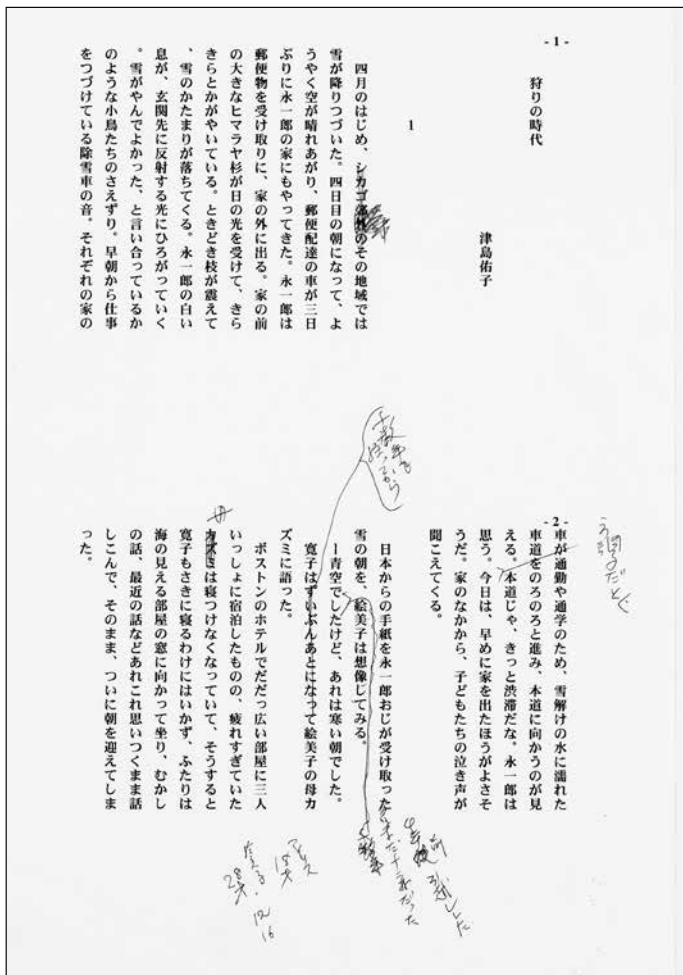 - 1 -
狩りの時代
津島佑子
1
四月のはじめ、シカゴ郊外のその地域では
雪が降りつづいた。四日目の朝になって、よ
うやく空が晴れあがり、郵便配達の車が三日
ぶりに永一郎の家にもやってきた。永一郎は
郵便物を受け取りに、家の外に出る。家の前
の大きなヒマラヤ杉が日の光を受けて、きら
きらとかがやいている。ときどき枝が震えて
、雪のかたまりが落ちてくる。永一郎の白い
息が、玄関先に反射する光にひろがっていく
。雪がやんでよかった、と言い合っているか
のような小鳥たちのさえずり。早朝から仕事
をつづけている除雪車の音。それぞれの家の
- 2 -
車が通勤や通学のため、雪解けの水に濡れた
車道をのろのろと進み、本道に向かうのが見
える。本道じゃ、きっと渋滞だな。永一郎は
思う。今日は、早めに家を出たほうがよさそ
うだ。家のなかから、子どもたちの泣き声が
聞こえてくる。
日本からの手紙を永一郎おじが受け取った
雪の朝を、絵美子は想像してみる。
ー青空でしたけど、あれは寒い朝でした。
寛子はずいぶんあとになって絵美子の母カ
ズミに語った。
ボストンのホテルでだだっ広い部屋に三人
いっしょに宿泊したものの、疲れすぎていた
カズミは寝つけなくなっていて、そうすると
寛子もさきに寝るわけにはいかず、ふたりは
海の見える部屋の窓に向かって坐り、むかし
の話、最近の話などあれこれ思いつくまま話
しこんで、そのまま、ついに朝を迎えてしま
った。
母
十数年も
経ってから
18才
28才
12
16